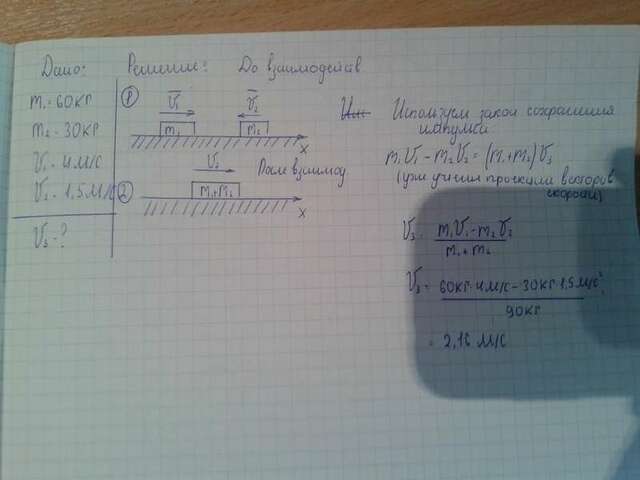 Дано:
m₁=60кг
m₂=30кг
v₁=4м/с
v₂=1,5м/с
v₃-?
Решение: До взаимодейств
①
v₁ v₂
m₁ m₂
x
v₃ После взаимод.
②
m₁+m₂
x
Используем закон сохранения
импульса
m₁v₁-m₂v₂=(m₁+m₂)v₃
(уже учтём проекции векторов
скорости)
v₃= m₁v₁-m₂v₂
m₁+m₂
v₃= 60кг·4м/с-30кг·1,5м/с
90кг
= 2,16 м/с